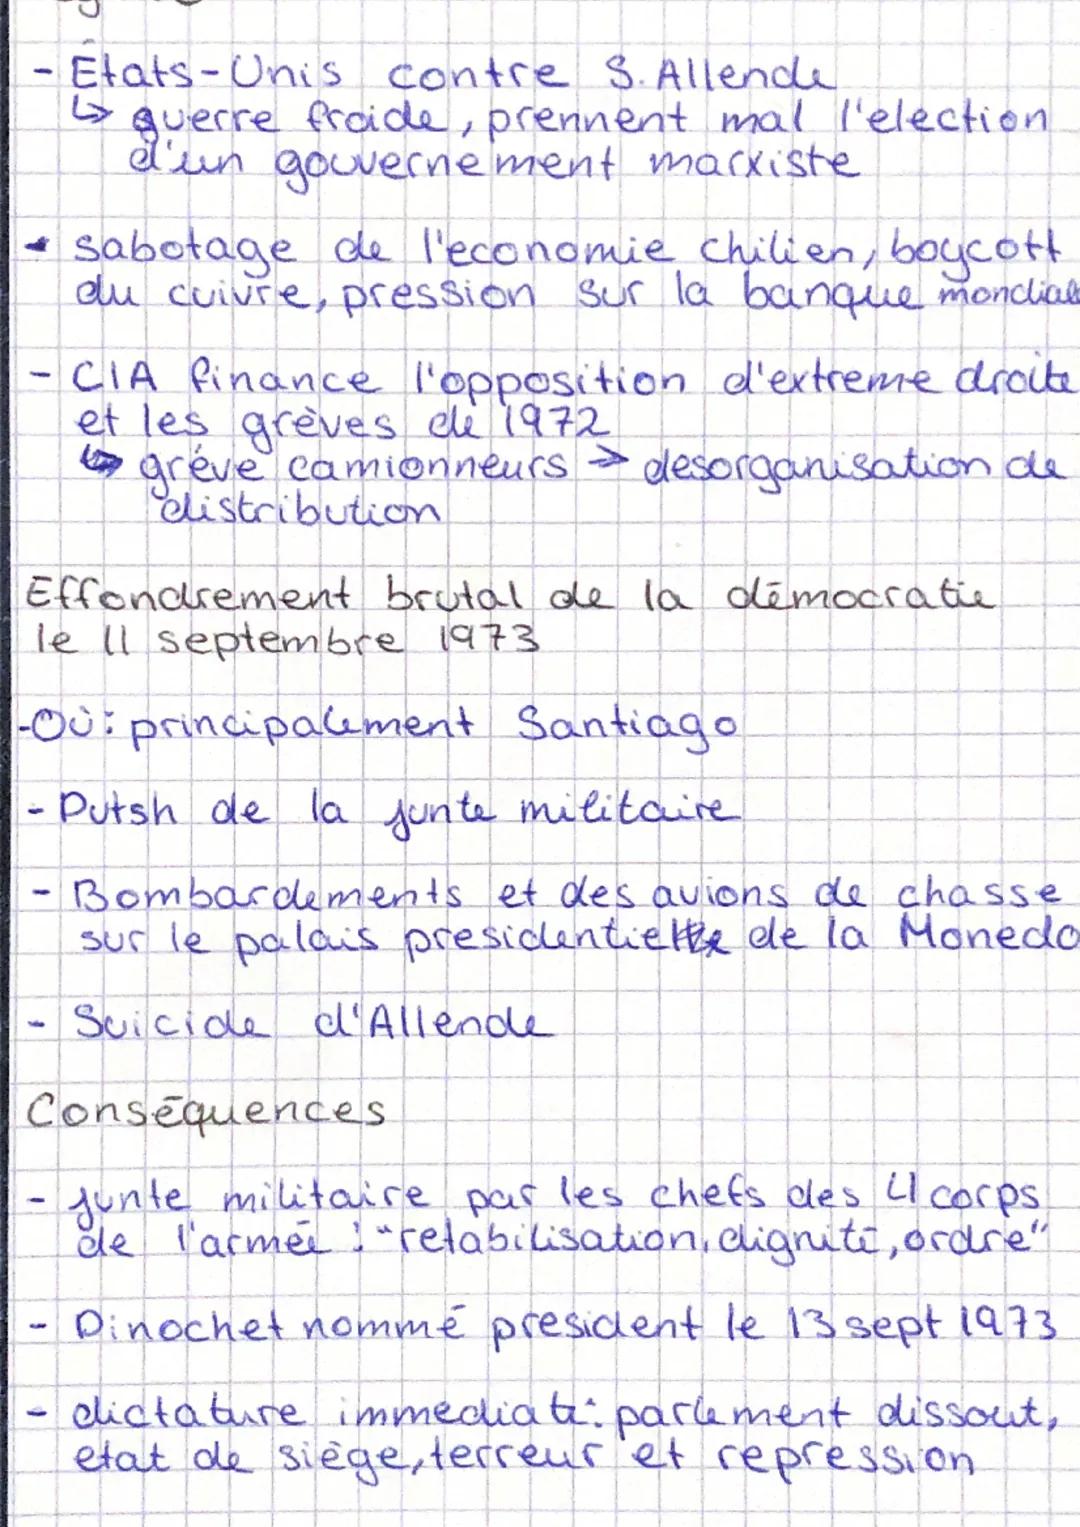 - États-Unis contre S. Allende
↳ guerre froide, prennent mal l'election
d'un gouvernement marxiste
- sabotage de l'economie chilien, boycott
du cuivre, pression sur la banque mondiale
- CIA finance l'opposition d'extreme droite
et les grèves de 1972
↳ gréve camionneurs → desorganisation de
distribution
Effondrement brutal de la démocratie
le 11 septembre 1973
-Où: principalement Santiago
- Putsh de la junte militaire
- Bombardements et des avions de chasse
sur le palais presidentiel de la Moneda
- Suicide d'Allende
Conséquences
- junte militaire par les chefs des 4 corps
de l'armée : "retabilisation, dignité, ordre"
- Pinochet nommé president le 13 sept 1973
- dictature immediate: parlement dissout,
etat de siège, terreur et repression